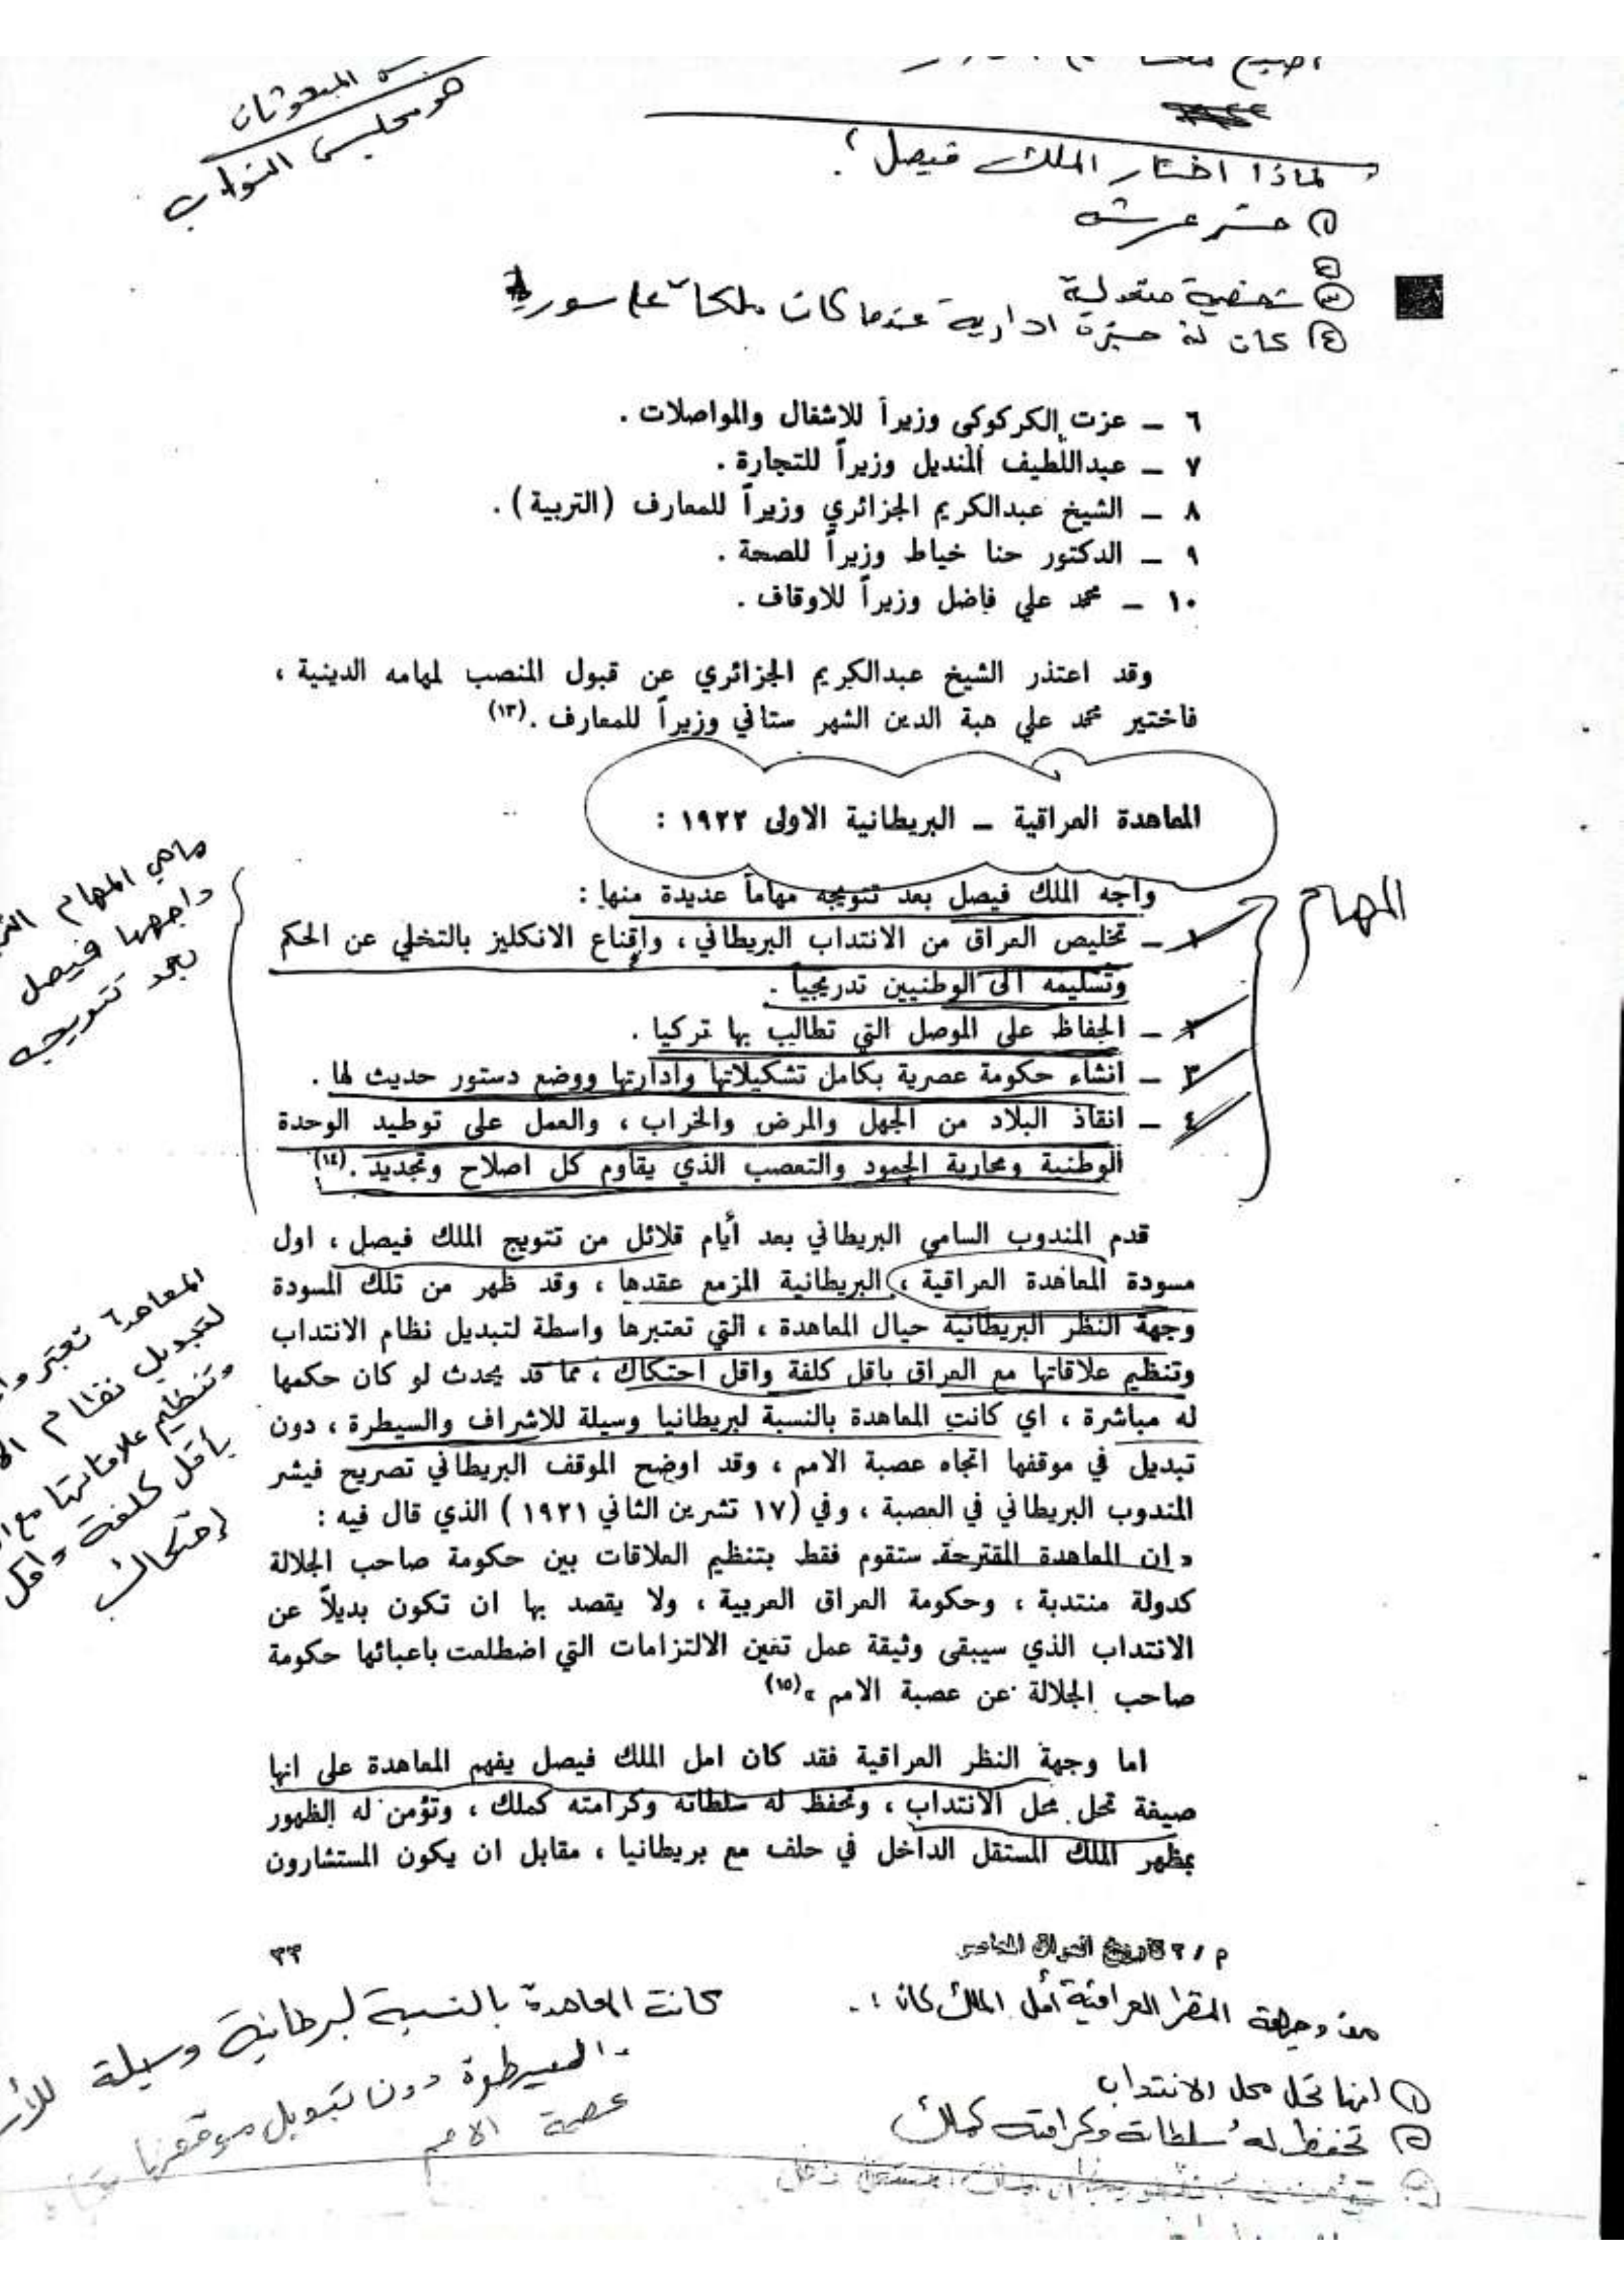 المبعوثان
هو مجلس النواب
لماذا اختار الملك فيصل؟
شخصية معتدلة
كان له خبرة ادارية عندما كان ملكاً على سوريا
٦ – عزت الكركوكي وزيراً للاشغال والمواصلات .
٧ – عبداللطيف المنديل وزيراً للتجارة .
٨ – الشيخ عبدالكريم الجزائري وزيراً للمعارف (التربية) .
٩ – الدكتور حنا خياط وزيراً للصحة .
١٠ – محمد علي فاضل وزيراً للاوقاف .
وقد اعتذر الشيخ عبدالكريم الجزائري عن قبول المنصب لمهامه الدينية ،
فاختير محمد علي هبة الدين الشهر ستاني وزيراً للمعارف .(١٣)
المعاهدة العراقية – البريطانية الاولى ١٩٢٢ :
واجه الملك فيصل بعد تتويجه مهاماً عديدة منها :
١ – تخليص العراق من الانتداب البريطاني ، واقناع الانكليز بالتخلي عن الحكم
وتسليمه الى الوطنيين تدريجياً .
٢ – الحفاظ على الموصل التي تطالب بها تركيا .
٣ – انشاء حكومة عصرية بكامل تشكيلاتها وادارتها ووضع دستور حديث لها .
٤ – انقاذ البلاد من الجهل والمرض والخراب ، والعمل على توطيد الوحدة
الوطنية ومحاربة الجمود والتعصب الذي يقاوم كل اصلاح وتجديد .(١٤)
المهام
ماهي المهام
واجهها فيصل
بعد تتويجه
قدم المندوب السامي البريطاني بعد أيام قلائل من تتويج الملك فيصل ، اول
مسودة المعاهدة العراقية ، البريطانية المزمع عقدها ، وقد ظهر من تلك المسودة
وجهة النظر البريطانية حيال المعاهدة ، التي تعتبرها واسطة لتبديل نظام الانتداب
وتنظيم علاقاتها مع العراق باقل كلفة واقل احتكاك ، مما قد يحدث لو كان حكمها
له مباشرة ، اي كانت المعاهدة بالنسبة لبريطانيا وسيلة للاشراف والسيطرة ، دون
تبديل في موقفها اتجاه عصبة الامم ، وقد اوضح الموقف البريطاني تصريح فيشر
المندوب البريطاني في العصبة ، وفي (١٧ تشرين الثاني ١٩٢١) الذي قال فيه :
« ان المعاهدة المقترحة ستقوم فقط بتنظيم العلاقات بين حكومة صاحب الجلالة
كدولة منتدبة ، وحكومة العراق العربية ، ولا يقصد بها ان تكون بديلاً عن
الانتداب الذي سيبقى وثيقة عمل تعين الالتزامات التي اضطلعت باعبائها حكومة
صاحب الجلالة عن عصبة الامم »(١٥)
المعاهدة تعتبر
لتبديل نظام
وتنظيم علاقاتها مع
بأقل كلفة واقل
إحتكاك
اما وجهة النظر العراقية فقد كان امل الملك فيصل يفهم المعاهدة على انها
صيغة تحل محل الانتداب ، وتحفظ له سلطاته وكرامته كملك ، وتؤمن له الظهور
بمظهر الملك المستقل الداخل في حلف مع بريطانيا ، مقابل ان يكون المستشارون
م / ٣ تاريخ العراق المعاصر
٣٣
وجهة النظر العراقية أمل الملك كان :-
١ انها تحل محل الانتداب
٢ تحفظ له سلطاته وكرامته كملك
كانت المعاهدة بالنسبة لبرطانية وسيلة
والسيرطرة دون تبديل موقفها
عصبة الامم